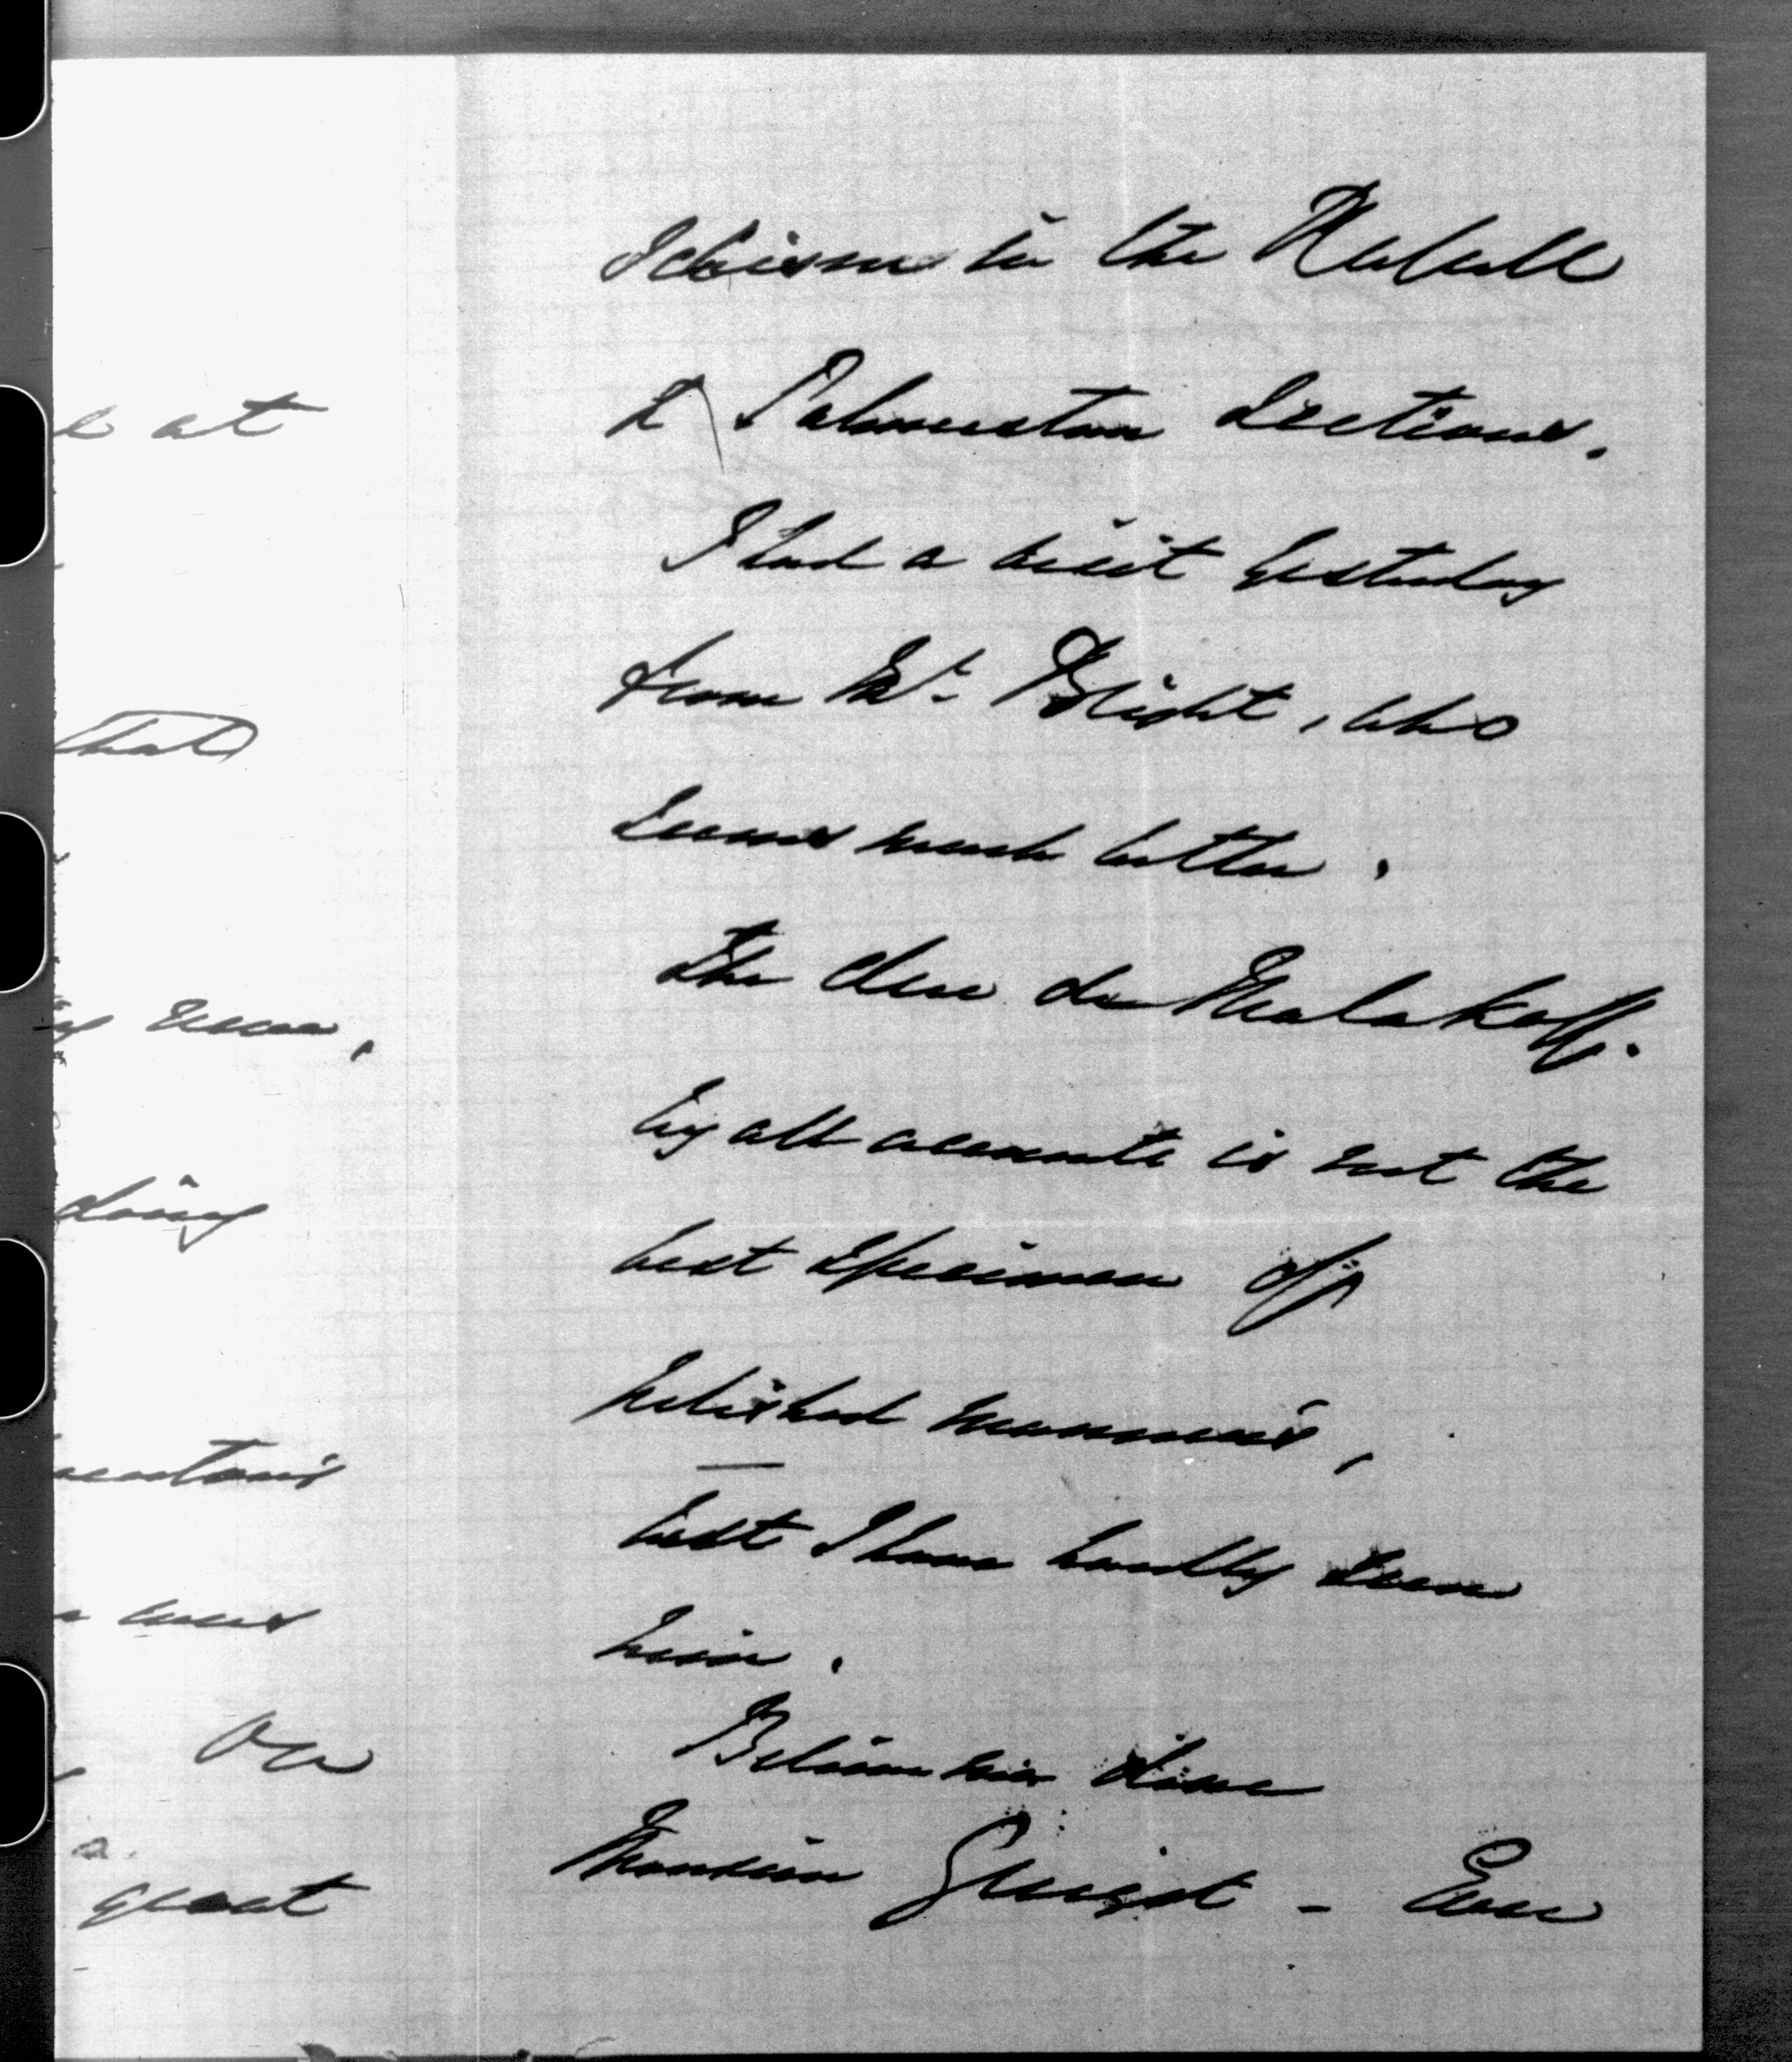 e at
that
my means,
doing
on
great
Schism in the Russell
& Palmerston Sections.
I had a visit yesterday
from Mr. Bright, who
seems much better.
The duc de Malakoff.
by all accounts is not the
best specimen of
polished manners,
but I have hardly seen
him.
Believe me dear
Monsieur Guizot – Ever